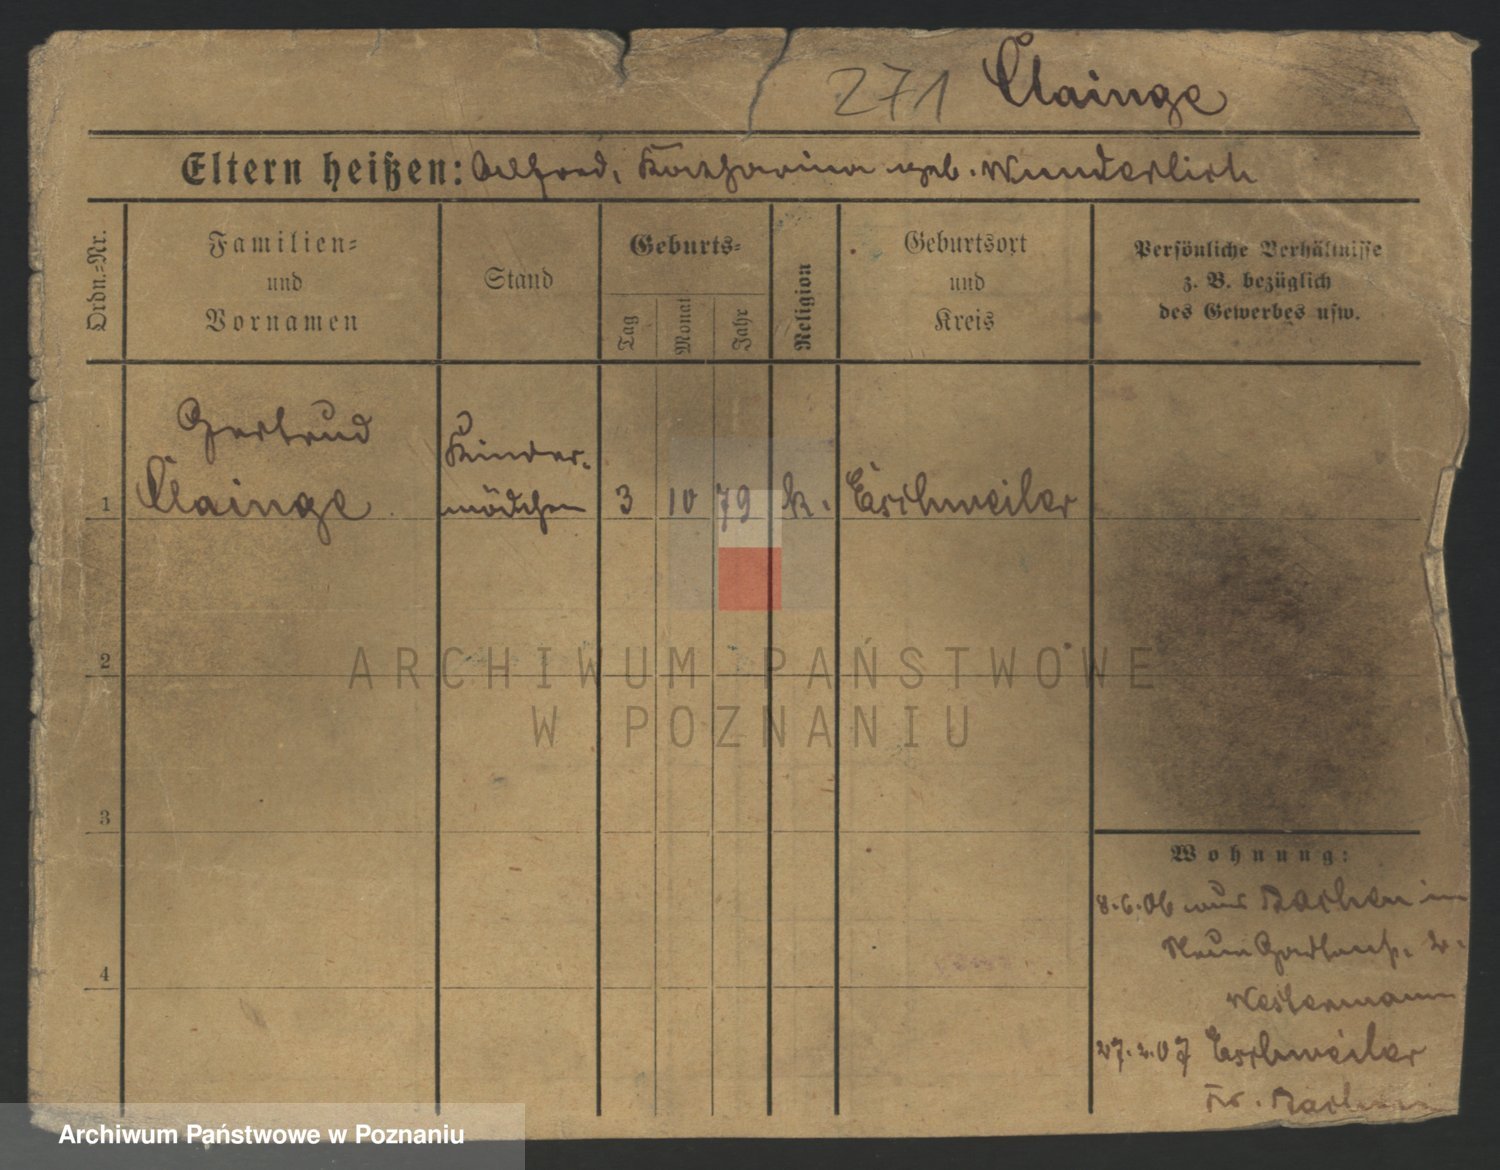 271 Clainge
Eltern heißen: Alfred, Katharina geb. Wunderlich
Ordn.-Nr.
Familien-
und
Vornamen
Stand
Geburts-
Tag
Monat
Jahr
Religion
Geburtsort
und
Kreis
Persönliche Verhältnisse
z. B. bezüglich
des Gewerbes usw.
Gertrud
Clainge
Kinder-
mädchen
1
3 10 79 k. Eschweiler
2
3
4
ARCHIWUM PAŃSTWOWE
W POZNANIU
Wohnung:
8.6.06 aus Aachen in
Neue Gartenstr. 2.
Westermann
27.2.07 Eschweiler
Kr. Aachen
Archiwum Państwowe w Poznaniu